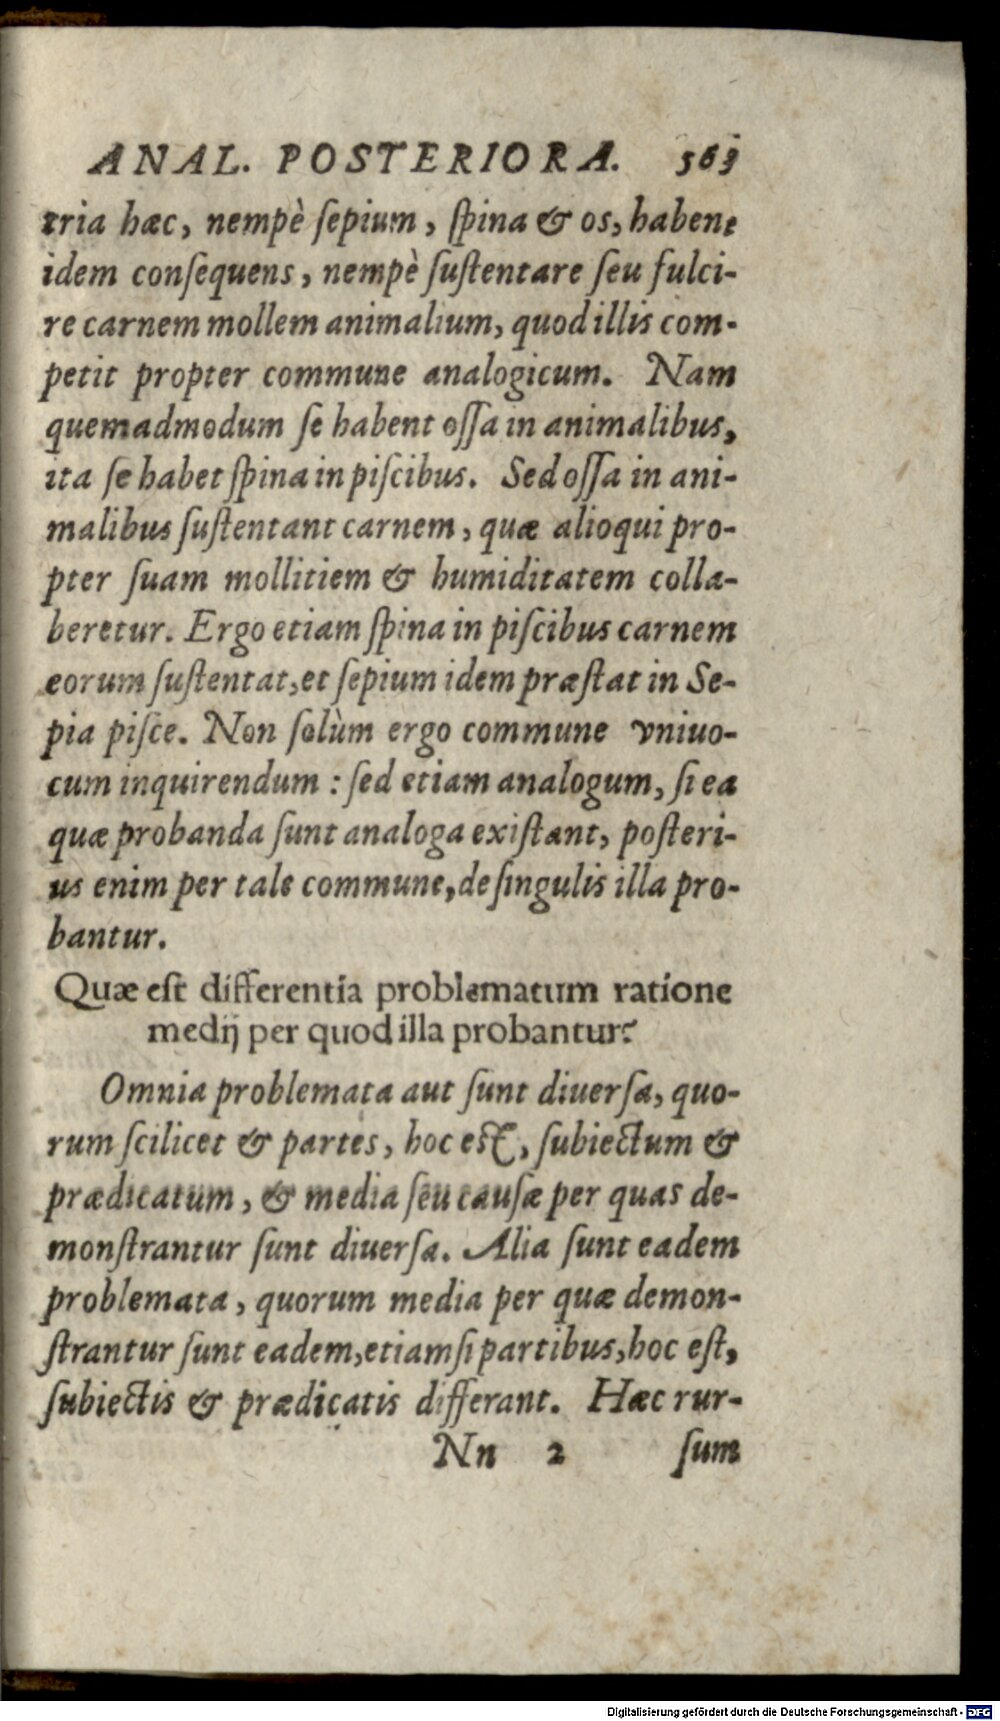 ANAL. POSTERIORA. 563
tria hæc, nempè ſepium, ſpina & os, habent
idem conſequens, nempè ſuſtentare ſeu fulci-
re carnem mollem animalium, quod illis com-
petit propter commune analogicum. Nam
quemadmodum ſe habent oſſa in animalibus,
ita ſe habet ſpina in piſcibus. Sed oſſa in ani-
malibus ſuſtentant carnem, quæ alioqui pro-
pter ſuam mollitiem & humiditatem colla-
beretur. Ergo etiam ſpina in piſcibus carnem
eorum ſuſtentat, et ſepium idem præſtat in Se-
pia piſce. Non ſolùm ergo commune vniuo-
cum inquirendum : ſed etiam analogum, ſi ea
quæ probanda ſunt analoga exiſtant, poſteri-
us enim per tale commune, de ſingulis illa pro-
bantur.
Quæ eſt differentia problematum ratione
medij per quod illa probantur?
Omnia problemata aut ſunt diuerſa, quo-
rum ſcilicet & partes, hoc eſt, ſubiectum &
prædicatum, & media ſeu cauſæ per quas de-
monſtrantur ſunt diuerſa. Alia ſunt eadem
problemata, quorum media per quæ demon-
ſtrantur ſunt eadem, etiamſi partibus, hoc eſt,
ſubiectis & prædicatis differant. Hæc rur-
Nn 2 ſum
Digitalisierung gefördert durch die Deutsche Forschungsgemeinschaft - DFG